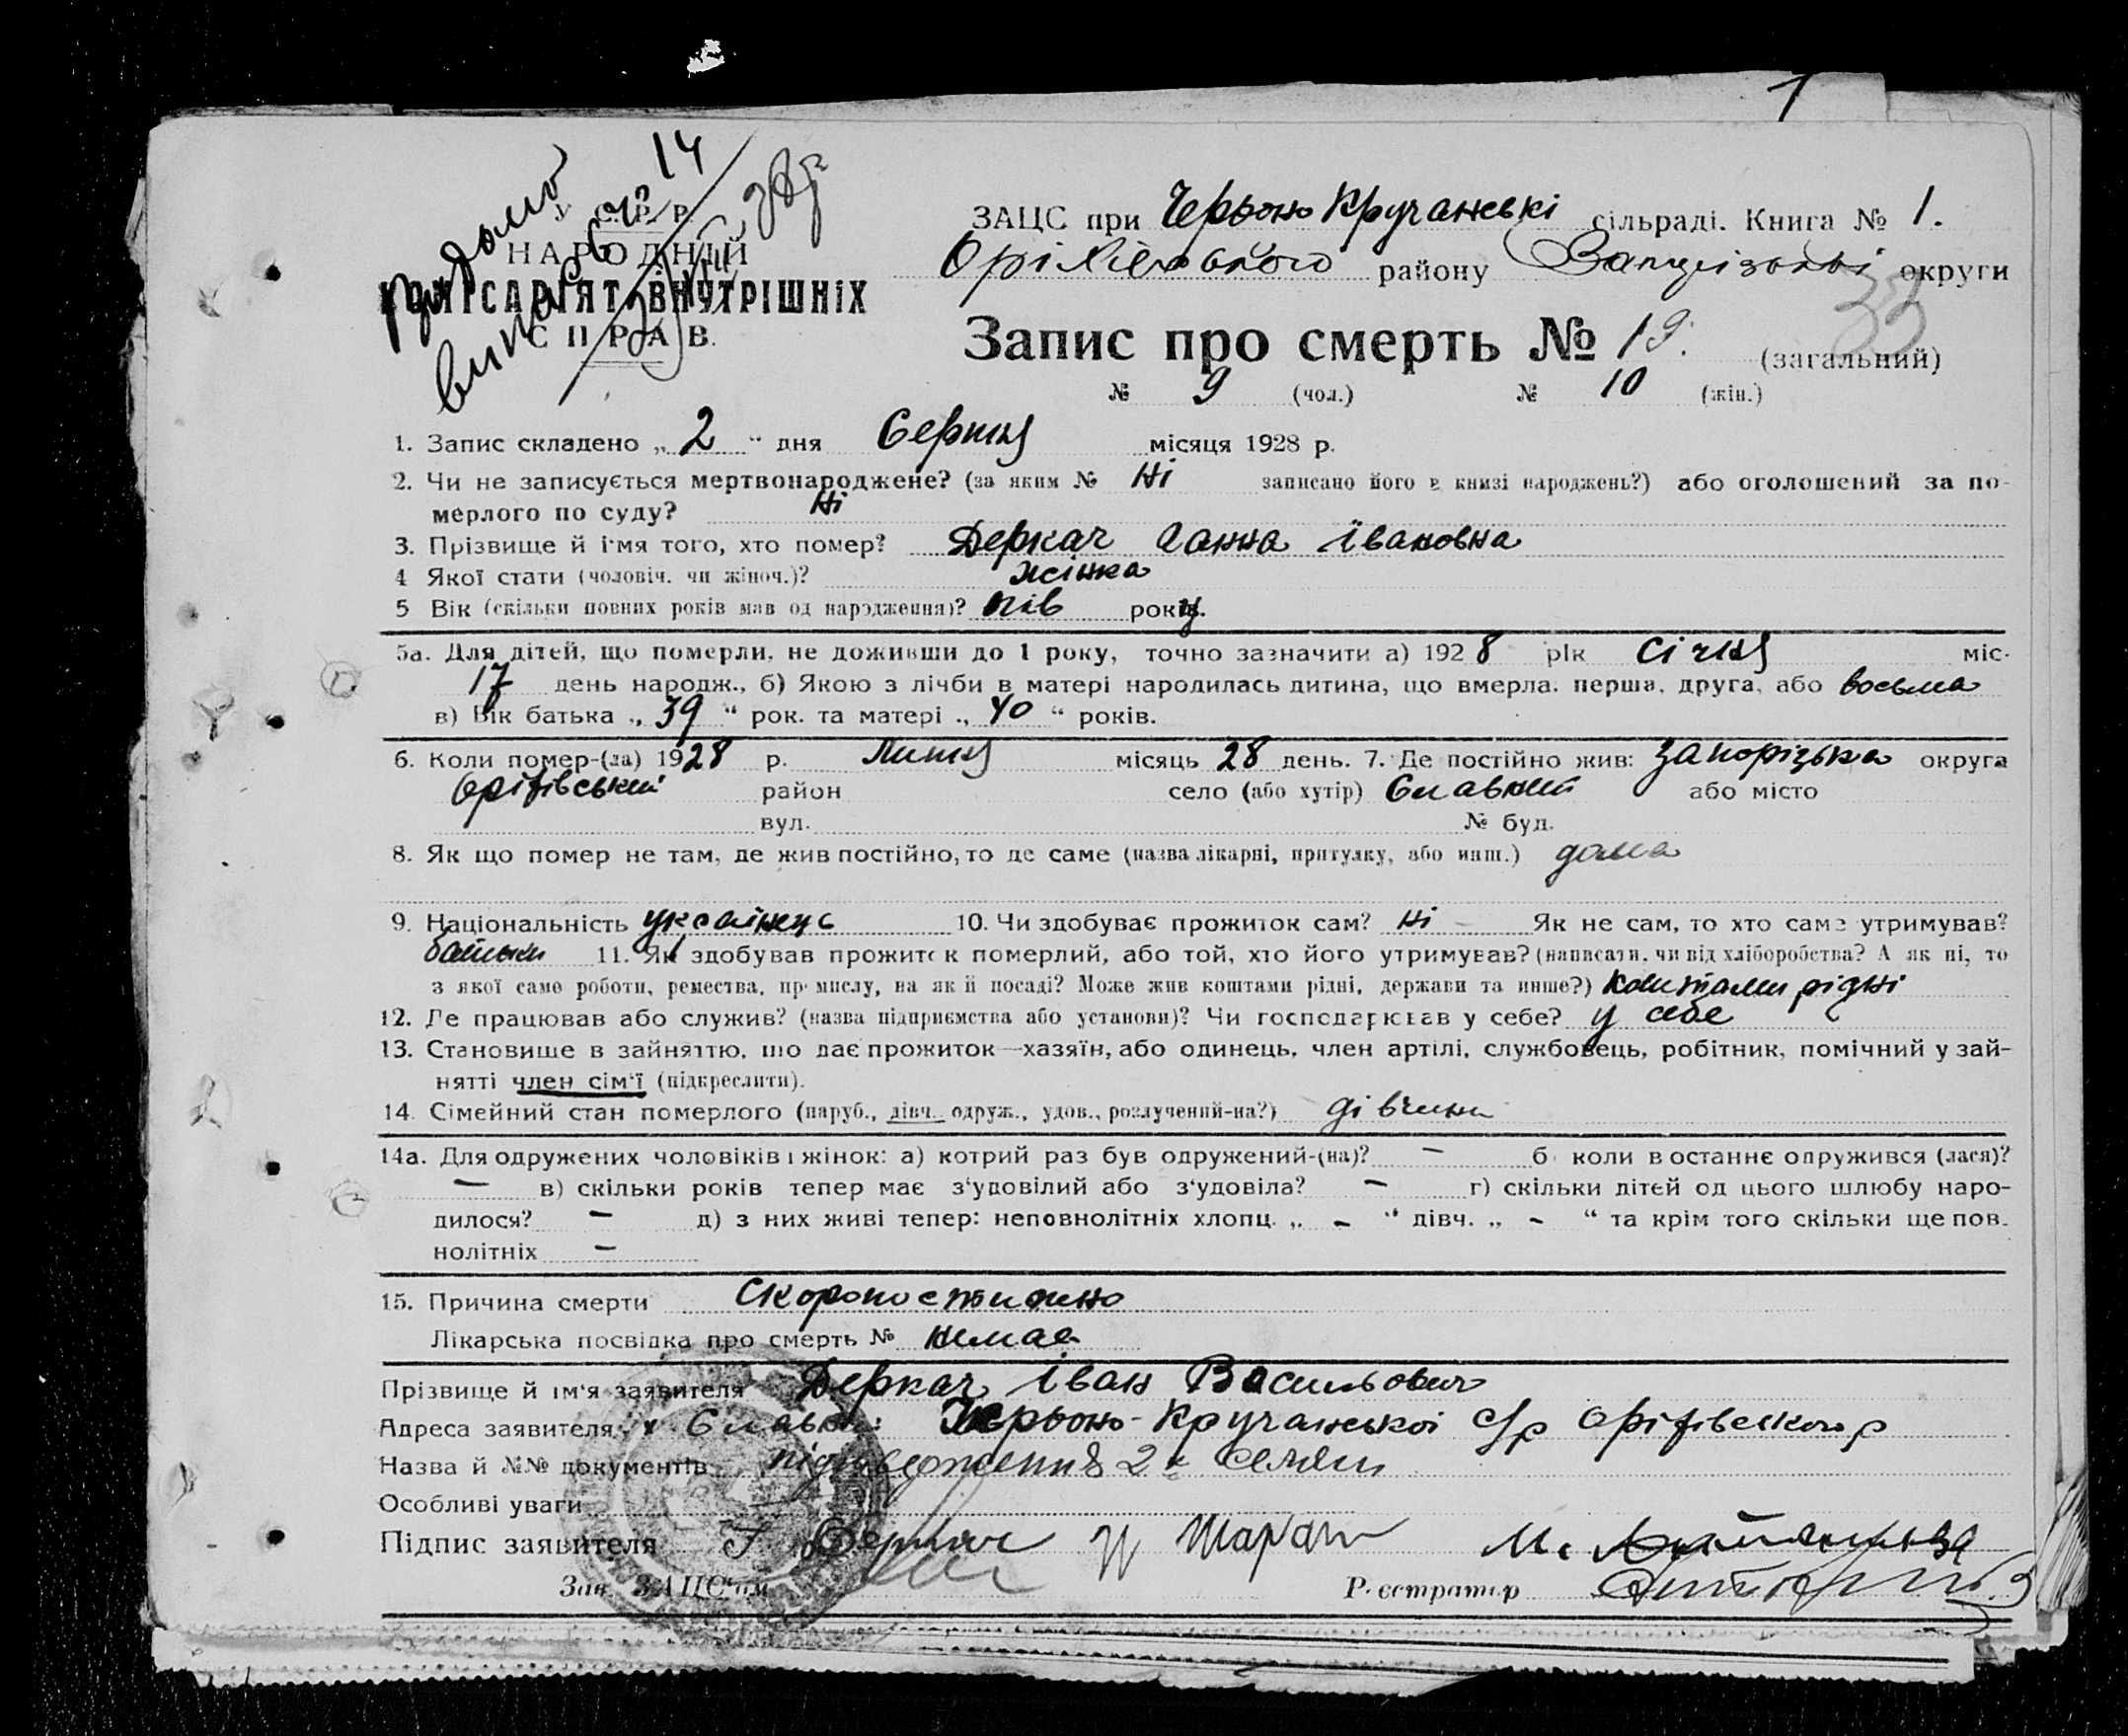 1
видано
виписъ № 14
У. С. Р. Р.
НАРОДНІЙ
КОМІСАРІЯТ ВНУТРІШНІХ
СПРАВ.
ЗАЦС при Червоно Кручанські сільраді. Книга № 1.
Оріхівського району Запорізькі округи
33
Запис про смерть № 19. (загальний)
№ 9 (чол.) № 10 (жін.)
1. Запис складено „ 2 “ дня Серпня місяця 1928 р.
2. Чи не записується мертвонароджене? (за яким № Ні записано його в книзі народжень?) або оголошений за по-
мерлого по суду? Ні
3. Прізвище й ім'я того, хто помер? Деркач Ганна Івановна
4 Якої стати (чоловіч. чи жіноч.)? жінка
5 Вік (скільки повних років мав од народження)? пів року.
5а. Для дітей, що померли, не доживши до 1 року, точно зазначити а) 1928 рік Січня міс.
17 день народж., б) Якою з лічби в матері народилась дитина, що вмерла: перша, друга, або восьма
в) Вік батька „ 39 “ рок. та матері „ 40 “ років.
6. Коли помер-(ла) 1928 р. Липня місяць 28 день. 7. Де постійно жив: Запорізька округа
Оріхівський район село (або хутір) Славний або місто
вул. № буд.
8. Як що помер не там, де жив постійно, то де саме (назва лікарні, притулку, або инш.) дома
9. Національність українець 10. Чи здобуває прожиток сам? Ні Як не сам, то хто саме утримував?
батьки 11. Як здобував прожиток померлий, або той, хто його утримував? (написати, чи від хліборобства? А як ні, то
з якої саме роботи, ремества, промислу, на якій посаді? Може жив коштами рідні, держави та инше?) коштами рідні
12. Де працював або служив? (назва підприємства або установи)? Чи господарював у себе? у себе
13. Становище в зайняттю, що дає прожиток—хазяїн, або одинець, член артілі, службовець, робітник, помічний у зай-
нятті член сім'ї (підкреслити).
14. Сімейний стан померлого (паруб., дівч. одруж., удов., розлучений-на?) дівчина
14а. Для одружених чоловіків і жінок: а) котрий раз був одружений-(на)? — б) коли в останнє одружився (лася)?
— в) скільки років тепер має з'удовілий або з'удовіла? — г) скільки дітей од цього шлюбу наро-
дилося? — д) з них живі тепер: неповнолітніх хлопц. „ - “ дівч. „ - “ та крім того скільки ще пов.
нолітніх —
15. Причина смерти Скоропостижно
Лікарська посвідка про смерть № немає
Прізвище й ім'я заявителя Деркач Іван Васильович
Адреса заявителя х Славний Червоно-Кручанської с/р Оріхівського р
Назва й №№ документів підтвердження 2х селян
Особливі уваги
Підпис заявителя І Деркач И Шаран М.
Зав. ЗАЦС'ом Реєстратор